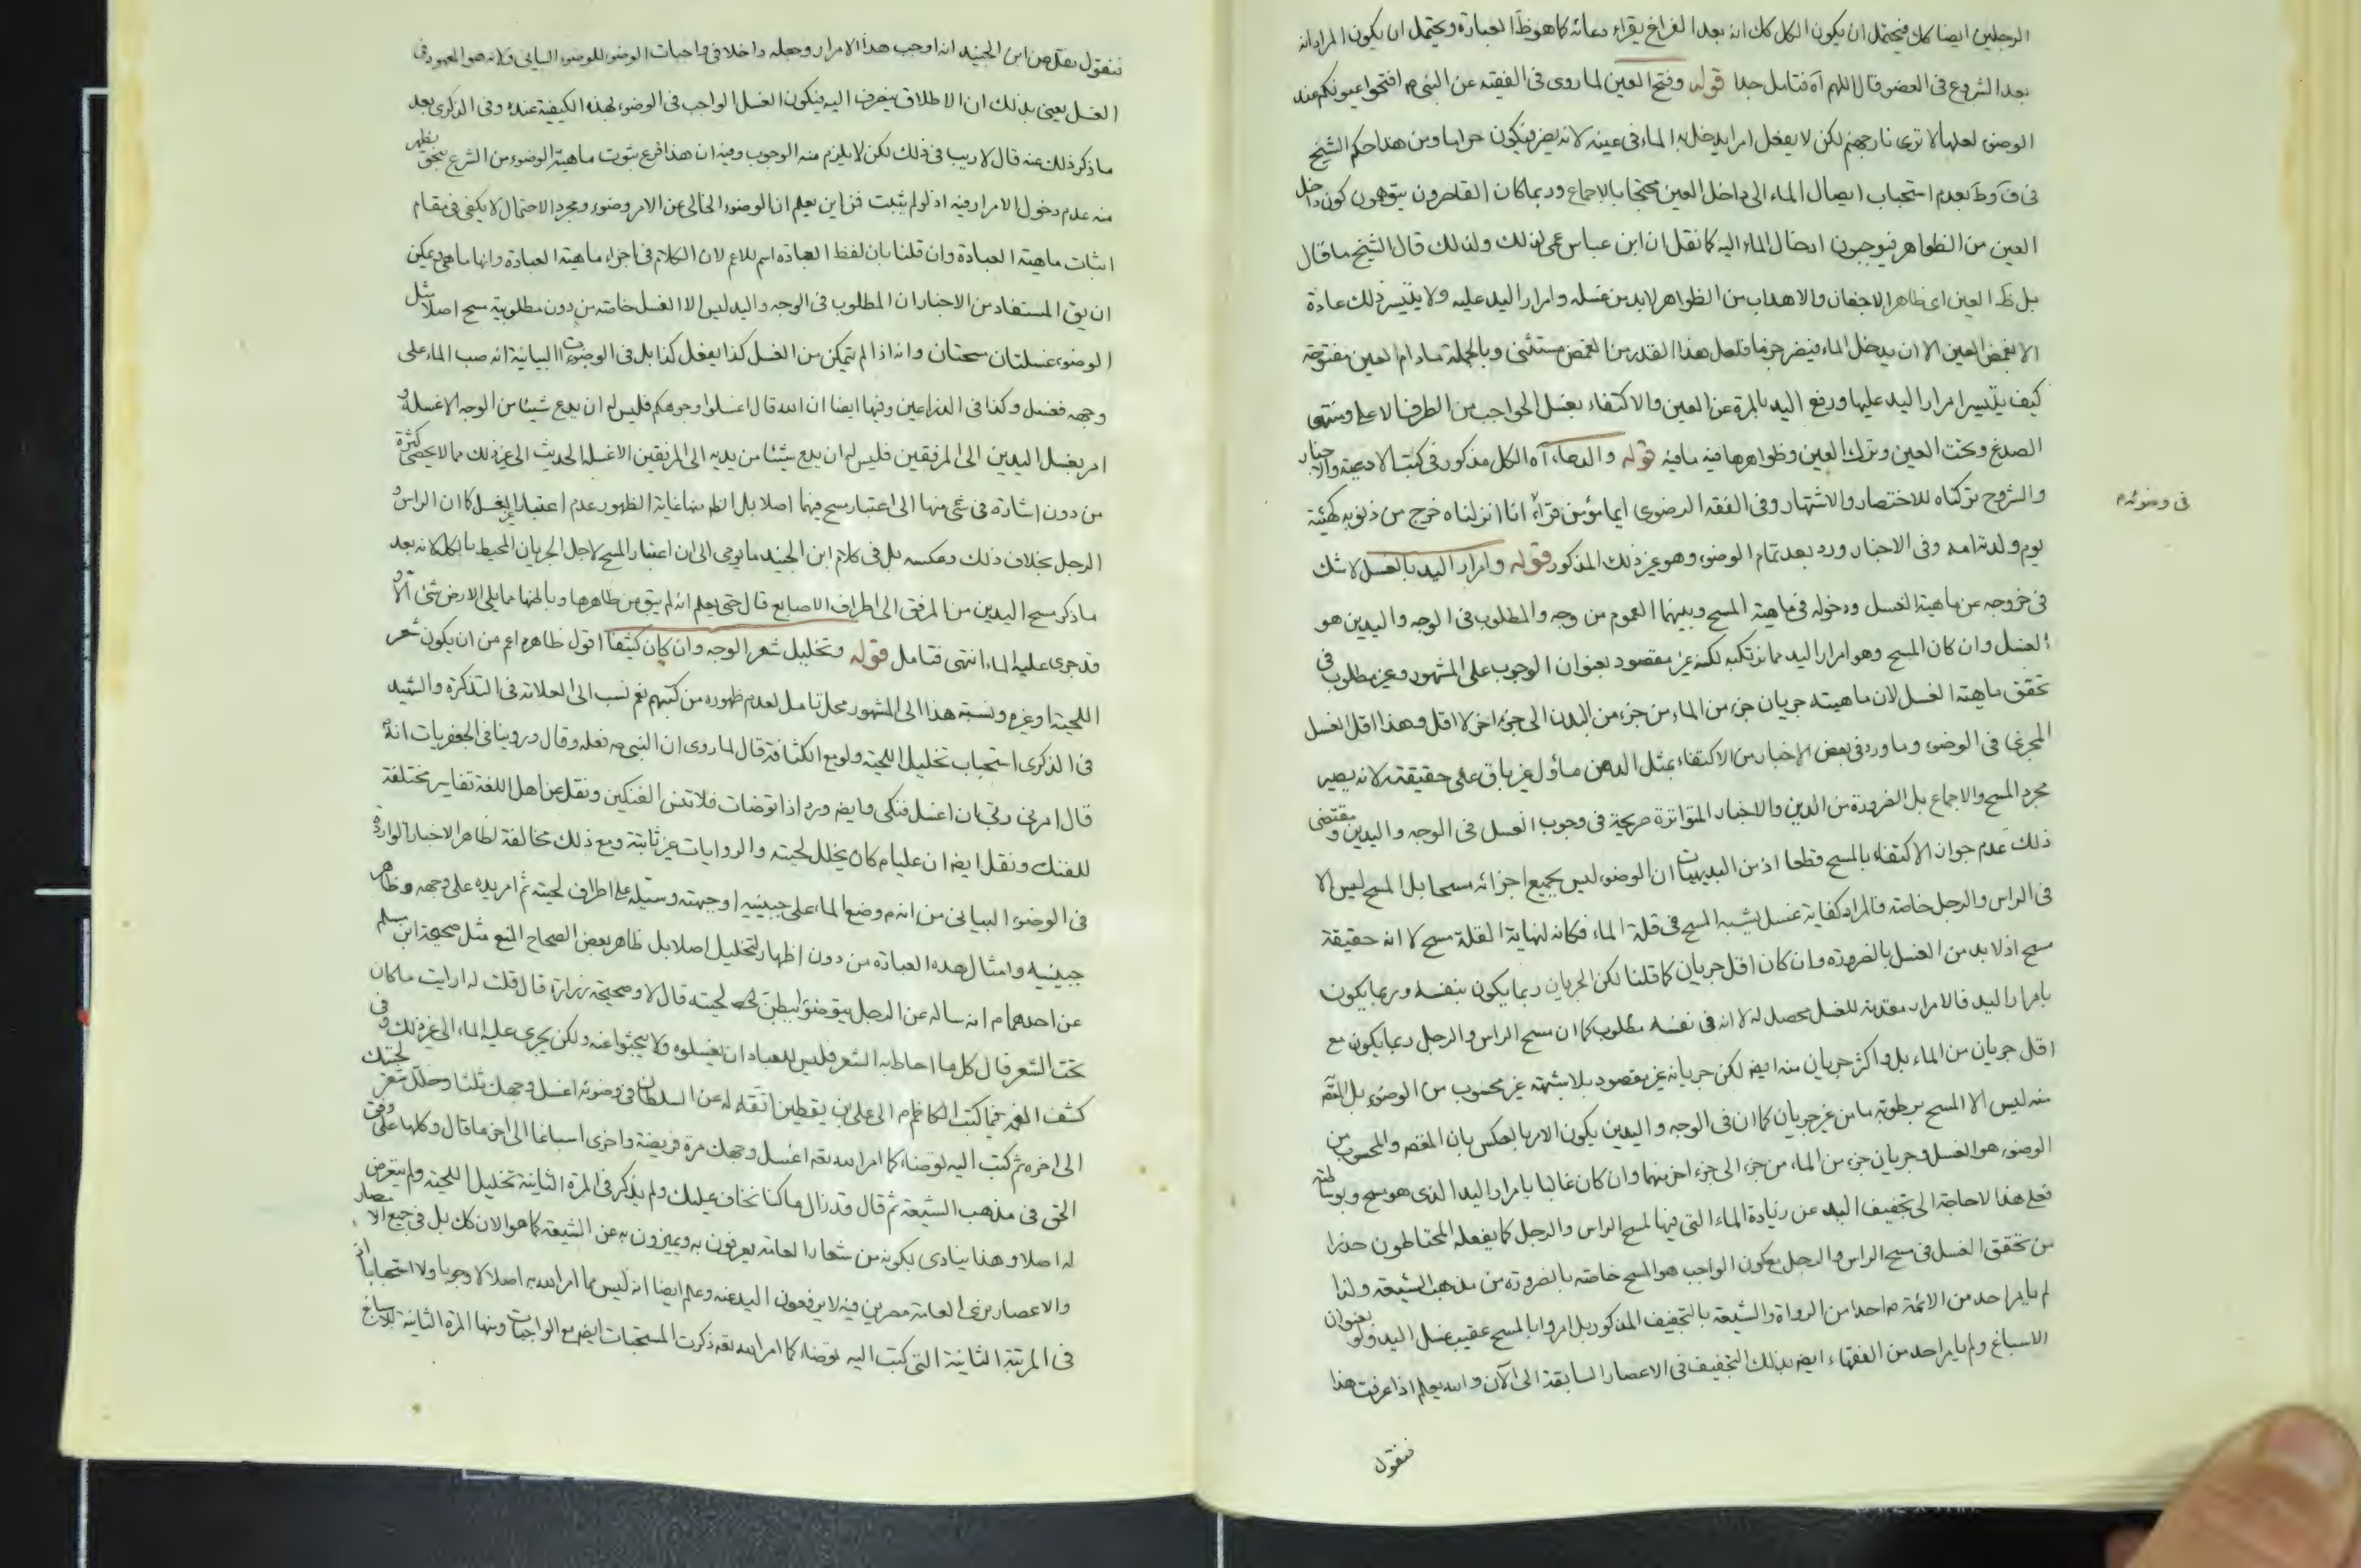 الرجلين ايضا كك فيحتمل ان يكون الكل كك انه بعد الفراغ يقراء دعائه كما هو ظ العبارة ويحتمل ان يكون المراد انه
بعد الشروع فى العضو قال اللهم آه فتامل جدا قوله وفتح العين لما روى فى الفقيه عن النبى ص افتحوا عيونكم عند
الوضوء لعلها لا ترى نار جهنم لكن لا يفعل امرا يدخل به الماء فى عينه لانه يضر فيكون حراما ومن هذا حكم الشيخ
فى ف وط بعدم استحباب ايصال الماء الى داخل العين محتجا بالاجماع وربما كان القاصرون يتوهمون كون داخل
العين من الظواهر فيوجبون ادخال الماء اليه كما نقل ان ابن عباس عمى لذلك ولذلك قال الشيخ ما قال
بل ظ العين اى ظاهر الاجفان والاهداب من الظواهر لابد من غسله وامرار اليد عليه ولا يتيسر ذلك عادة
الا بغمض العين الا ان يدخل الماء فيضر جزما فلعل هذا القدر من الغمض مستثنى وبالجملة مادام العين مفتوحة
كيف يتيسر امرار اليد عليها ورفع اليد بالمرة عن العين والاكتفاء بغسل الحواجب من الطرف الاعلى ومنتهى
الصدغ وتحت العين وترك العين وظواهرها فيه مافيه قوله والدعاء آه الكل مذكور فى كتب الادعية والاخبار
والشروح تركناه للاختصار والاشتهار وفى الفقه الرضوى ايما مؤمن قرأ انا انزلناه خرج من ذنوبه كهيئة
فى وضوئه م
يوم ولدته امه وفى الاخبار ورد بعد تمام الوضوء وهو غير ذلك المذكور قوله وامرار اليد بالغسل لا شك
فى خروجه عن ماهية الغسل ودخوله فى ماهية المسح وبينهما العموم من وجه والمطلوب فى الوجه واليدين هو
الغسل وان كان المسح وهو امرار اليد مما نرتكبه لكنه غير مقصود بعنوان الوجوب على المشهور وغير مطلوب فى
تحقق ماهية الغسل لان ماهيته جريان جزء من الماء من جزء من البدن الى جزء اخر لا اقل وهذا اقل الغسل
المجزى فى الوضوء وما ورد فى بعض الاخبار من الاكتفاء بمثل الدهن ماؤل غير باق على حقيقته لانه يصير
مجرد المسح والاجماع بل الضرورة من الدين والاخبار المتواترة صريحة فى وجوب الغسل فى الوجه واليدين ومقتضى
ذلك عدم جواز الاكتفاء بالمسح قطعا اذ من البديهيات ان الوضوء ليس بجميع اجزائه مسحا بل المسح ليس الا
فى الراس والرجل خاصة فالمراد كفاية غسل يشبه المسح فى قلة الماء فكانه لنهاية القلة مسح لا انه حقيقة
مسح اذ لابد من الغسل بالضرورة وان كان اقل جريان كما قلنا لكن الجريان ربما يكون بنفسه وربما يكون
بامرار اليد فالامرار مقدمة للغسل محصل له لا انه فى نفسه مطلوب كما ان مسح الراس والرجل ربما يكون مع
اقل جريان من الماء بل واكثر جريان منه ايضا لكن جريانه غير مقصود بلا شبهة غير محسوب من الوضوء بل
منه ليس الا المسح برطوبة ما من غير جريان كما ان فى الوجه واليدين يكون الامر بالعكس بان المقصود والمحسوب من
الوضوء هو الغسل وجريان جزء من الماء من جزء الى جزء اخر منهما وان كان غالبا بامرار اليد الذى هو مسح
فعلى هذا لا حاجة الى تجفيف اليد عن زيادة الماء التى فيها لمسح الراس والرجل كما يفعله المحتاطون حذرا
من تحقق الغسل فى مسح الراس والرجل يكون الواجب هو المسح خاصة بالضرورة من مذهب الشيعة ولذا
لم يامر احد من الائمة م احدا من الرواة والشيعة بالتجفيف المذكور بل امروا بالمسح عقيب غسل اليد ولو بعنوان
الاسباغ ولم يامر احد من الفقهاء ايضا بذلك التجفيف فى الاعصار السابقة الى الآن والله يعلم اذا عرفت هذا
فنقول
فنقول نقل عن ابن الجنيد انه اوجب هذا الامرار وجعله داخلا فى واجبات الوضوء للوضوء البيانى ولانه هو المعهود فى
الغسل يعنى بذلك ان الاطلاق ينصرف اليه فيكون الغسل الواجب فى الوضوء بهذه الكيفية عنده وفى الذكرى بعد
ما ذكر ذلك عنه قال لا ريب فى ذلك لكن لا يلزم منه الوجوب وفيه ان هذا فرع ثبوت ماهية الوضوء من الشرع بنحو يظهر
منه عدم دخول الامرار فيه اذ لو لم يثبت فمن اين يعلم ان الوضوء الخالى عن الامر وضوء ومجرد الاحتمال لا يكفى فى مقام
اثبات ماهية العبادة وان قلنا بان لفظ العبادة اسم للاعم لان الكلام فى اجزاء ماهية العبادة وانها ماهى ويمكن
ان يق المستفاد من الاخبار ان المطلوب فى الوجه واليد ليس الا الغسل خاصة من دون مطلوبية مسح اصلا مثل
الوضوء غسلتان ومسحتان وانه اذا لم يتمكن من الغسل كذا يفعل كذا بل فى الوضوءات البيانية انه صب الماء على
وجهه فغسل وكذا فى الذراعين وفيها ايضا ان الله قال اغسلوا وجوهكم فليس له ان يدع شيئا من الوجه الا غسله و
امر بغسل اليدين الى المرفقين فليس له ان يدع شيئا من يديه الى المرفقين الا غسله الحديث الى غير ذلك مما لا يحصى كثرة
من دون اشارة فى شئ منها الى اعتبار مسح فيهما اصلا بل الظ منها غاية الظهور عدم اعتبار غير الغسل كما ان الراس و
الرجل بخلاف ذلك وبعكسه بل فى كلام ابن الجنيد ما يومى الى ان اعتبار المسح لاجل الجريان المحيط بالكل لانه بعد
ما ذكر مسح اليدين من المرفق الى اطراف الاصابع قال حتى يعلم انه لم يبق من ظاهرها وباطنها مما يلى الارض شئ الا و
قد جرى عليه الماء انتهى فتامل قوله وتخليل شعر الوجه وان كان كثيفا اقول ظاهره اعم من ان يكون شعر
اللحية او غيره ونسبة هذا الى المشهور محل تامل لعدم ظهوره من كتبهم نعم نسب الى العلامة فى التذكرة والشهيد
فى الذكرى استحباب تخليل اللحية ولو مع الكثافة قال لما روى ان النبى ص فعله وقال وروينا فى الجعفريات انه
قال امرنى ربى ان اغسل فنكى وايضا ورد اذا توضات فلا تنس الفنكين ونقل عن اهل اللغة تفاسير مختلفة
للفنك ونقل ايضا ان عليا م كان يخلل لحيته والروايات غير ثابتة ومع ذلك مخالفة لظاهر الاخبار الواردة
فى الوضوء البيانى من انه م وضع الماء على جبينيه او جبهته وسيله على اطراف لحيته ثم امر يده على وجهه وظاهر
جبينيه وامثال هذه العبارة من دون اظهار لتخليل اصلا بل ظاهر بعض الصحاح المنع مثل صحيحة ابن مسلم
عن احدهما م انه ساله عن الرجل يتوضؤ ايبطن لحيته قال لا وصحيحة زرارة قال قلت له ارايت ما كان
تحت الشعر قال كل ما احاط به الشعر فليس للعباد ان يغسلوه ولا يبحثوا عنه ولكن يجرى عليه الماء الى غير ذلك وفى
كشف الغمة فيما كتب الكاظم م الى على بن يقطين اتقاء له عن السلطان فى وضوئه اغسل وجهك ثلثا وخلل شعر لحيتك
الى اخره ثم كتب اليه توضاء كما امر الله تعه اغسل وجهك مرة فريضة واخرى اسباغا الى اخر ما قال وكلها على وفق
الحق فى مذهب الشيعة ثم قال قد زال ما كنا نخاف عليك ولم يذكر فى المرة الثانية تخليل اللحية ولم يتعرض
له اصلا وهذا ينادى بكونه من شعار العامة يعرفون به ويميزون به عن الشيعة كما هو الان كك بل فى جميع الامصار
والاعصار نرى العامة مصرين فيه لا يرفعون اليد عنه وعلم ايضا انه ليس مما امر الله به اصلا لا وجوبا ولا استحبابا اذ
فى المرتبة الثانية التى كتب اليه توضاء كما امر الله تعه ذكرت المستحبات ايضا مع الواجبات ومنها المرة الثانية للاسباغ